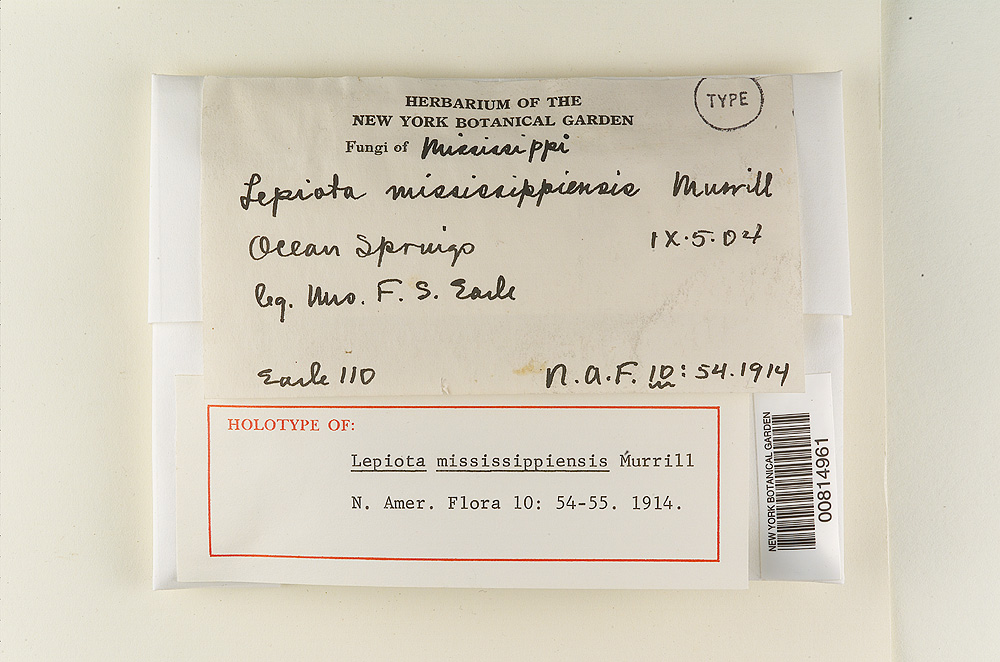 HERBARIUM OF THE
NEW YORK BOTANICAL GARDEN
TYPE
Fungi of Mississippi
Lepiota mississippiensis Murrill
Ocean Springs IX.5.04
leg. Mrs. F. S. Earle
Earle 110 N.A.F. 10: 54. 1914
HOLOTYPE OF:
Lepiota mississippiensis Murrill
N. Amer. Flora 10: 54-55. 1914.
NEW YORK BOTANICAL GARDEN
00814961